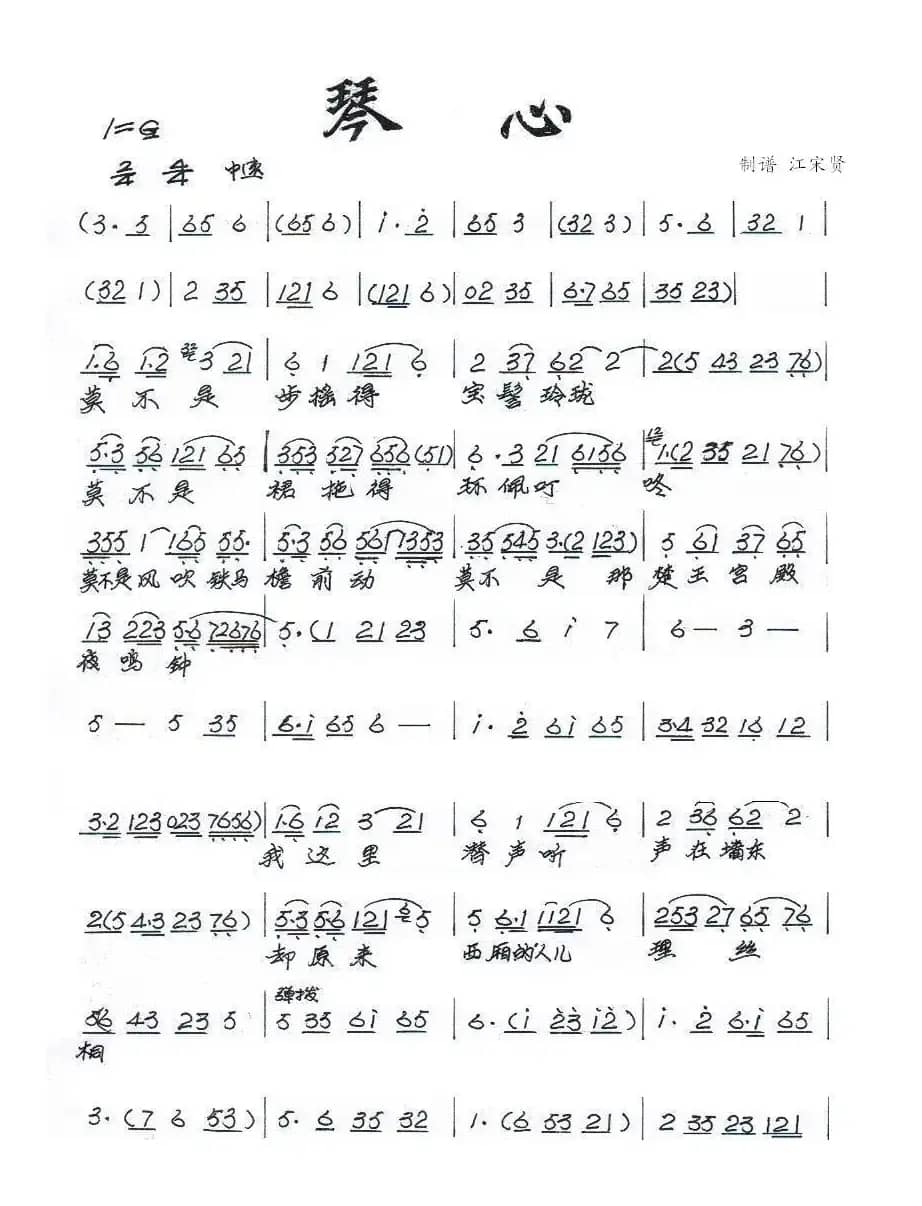 琴心
1=G
2/4 4/4 中速
制谱 江宋贤
(3·5 | 65 6 | (65 6) | i·2 | 65 3 | (32 3) | 5·6 | 32 1 |
(32 1) | 2 35 | 121 6 | (121 6) | 02 35 | 6·765 | 35 23) |
1·6 1·2 3 21 | 6 1 121 6 | 2 37 62 2 | 2(5 43 23 76) |
莫不是 步摇得 宝髻玲珑
5·3 56 121 65 | 353 527 656(51) | 6·3 21 6156 | 1·(2 35 21 76) |
莫不是 裙拖得 环佩叮 咚
355 1 165 55· | 5·3 56 561 353 | 35 545 3·(2 123) | 5 61 37 65 |
莫不是风吹铁马 檐前动 莫不是那 楚王宫殿
13 223 5·6 72676 | 5·(1 21 23 | 5·6 i 7 | 6— 3— |
夜鸣钟
5— 5 35 | 6·i 65 6— | i·2 6i 65 | 3·4 32 16 12 |
3·2 123 023 7656) | 1·6 12 3 21 | 6 1 121 6 | 2 36 62 2 |
我这里 潜声听 声在墙东
2(5 4·3 23 76) | 5·3 5·6 121 5 | 5 6·1 1121 6 | 253 27 65 76 |
却原来 西厢的人儿 理丝
弹拨
56 43 23 5 | 5 35 6i 65 | 6·(i 23 i2) | i·2 6·i 65 |
桐
3·(7 6 53) | 5·6 35 32 | 1·(6 53 21) | 2 35 23 121 |